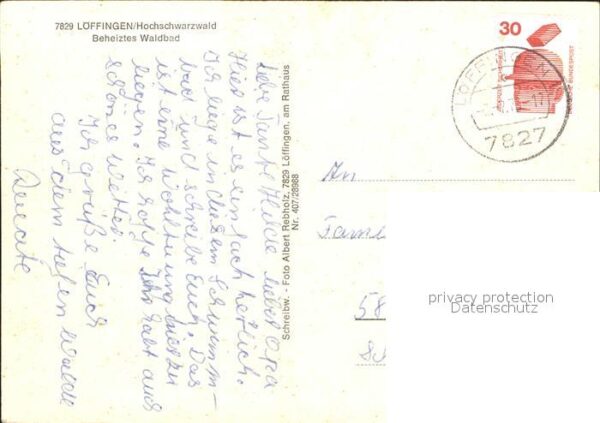 7829 LÖFFINGEN/Hochschwarzwald
Beheiztes Waldbad
Liebe Tante Hilde, lieber Opa
Hier ist es einfach herrlich.
Ich liege in diesem Schwimm-
bad und schreibe Euch. Das
ist eine Wohltuung hier zu
liegen. Ich hoffe Ihr habt auch
schönes Wetter.
Ich grüße Euch
aus dem tiefen Walde
Renate
Schreibw. - Foto Albert Rebholz, 7829 Löffingen, am Rathaus
Nr. 407/28968
30
DEUTSCHE BUNDESPOST
LÖFFINGEN
7827
An
Fami
58
privacy protection
Datenschutz